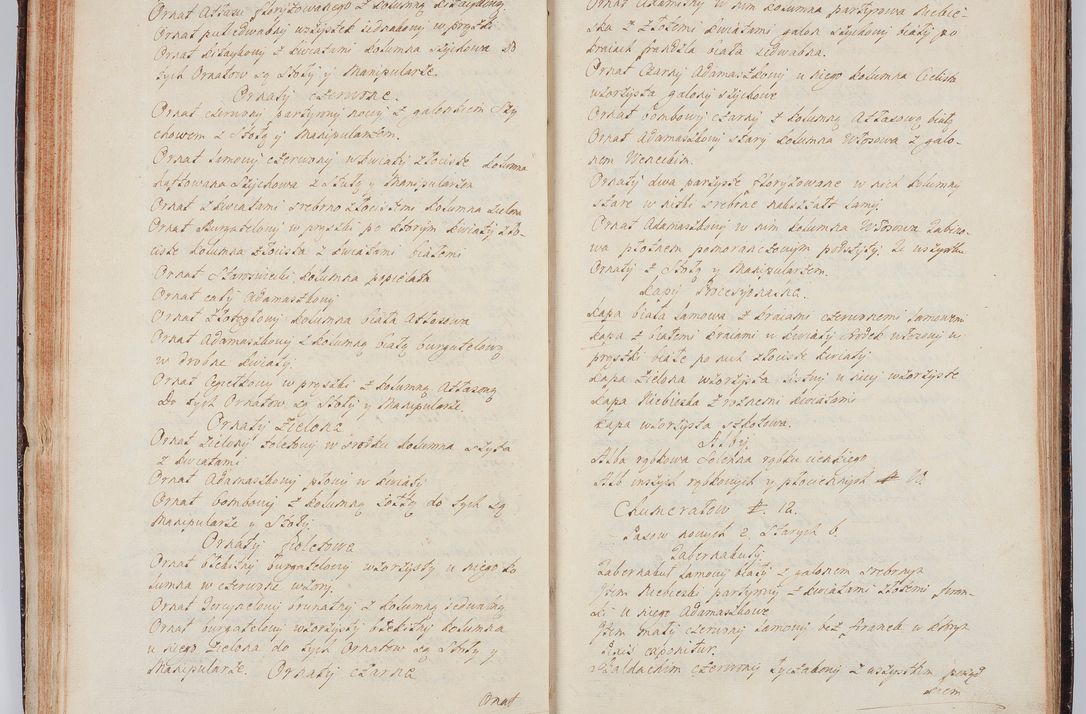 Ornat Attasu floryzowanego z kolumną kitaykową
Ornat pułiedwabny wzłystek iednakowy w prążki
Ornat kitaykowy z kwiatami kolumna szychowa do
tych Ornatow są Stoły y Manipularze.
Ornaty czerwone.
Ornat czerwony parterowy nowy z galonkiem Szy
chowem z Stołą y Manipularzem.
Ornat Lamowy czerwony w kwiatki złociste kolumna
haftowana Szychowa z Stułą y Manipularzem
Ornat z kwiatami srebrno złocistemi kolumna zielona
Ornat burgatelowy w prążki po ktorym kwiaty zło-
ciste kolumna złocista z kwiatami białemi
Ornat Staroswiecki kolumna popielata
Ornat cały Adamaszkowy
Ornat złotogłowy kolumna biała Attasowa
Ornat Adamaszkowy z kolumną białą burgatelową
w drobne kwiaty.
Ornat w prążki z kolumną Attasową
Do tych Ornatow są Stoły y Manipularze.
Ornaty zielone
Ornat zielony w srodku kolumna szyta
z kwiatami
Ornat Adamaszkowy płowy w kwiaty
Ornat bombowy z kolumną żołtą do tych są
Manipularze y Stoły.
Ornaty fioletowe
Ornat błękitny burgatelowy wzorzysty u niego ko
lumna w czerwone wzory.
Ornat brunatny z kolumną iedwabną
Ornat burgatelowy wzorzysty błękitny kolumna
u niego zielona do tych Ornatow są Stoły y
Manipularze. Ornaty czarne
Ornat
Ornat Adamiony w nim kolumna parterowa Niebie-
ska z złotemi kwiatami galon szychowy biały po
kraiach frandzla biała iedwabna.
Ornat Czarny Adamaszkowy u niego kolumna Cielista
wzorzysta galony szychowe
Ornat bombowy czarny z kolumną Attasową białą
Ornat Adamaszkowy stary kolumna Włosowa z galo-
nem Weneckim.
Ornaty dwa parzyste floryzowane w nich kolumny
stare w nitki srebrne nakształt Lamy
Ornat Adamaszkowy w nim kolumna Włosowa
wa płotnem pomaranczowym podszyty. Do wszystkie
Ornaty z Stołą y Manipularzem.
Kapy Processyonalne.
Kapa biała Lamowa z kraiami czerwonemi Lamowemi
Kapa z białemi kraiami w kwiaty srodek wzorowy w
prążki białe po nich złociste kwiaty
Kapa zielona wzorzysta u niey wzorzyste
Kapa Niebieska z rożnemi kwiatami
Kapa wzorzysta szkotowa.
Alby
Alba rąbkowa Solenna rąbku cienkiego
Alb inszych rąbkowych y płociennych # 10.
Chumerałow #. 12.
Pasow nowych 2. Starych 6.
Tabernakuły
Tabernakuł Lamowy biały z galonem srebrnym
Item Niebieski parterowy z kwiatami złotemi firan-
ki u niego Adamaszkowe
Item mały czerwony Lamowy bez firanek w ktorym
exponitur.
Baldachim czerwony z wszystkim porząd
kiem